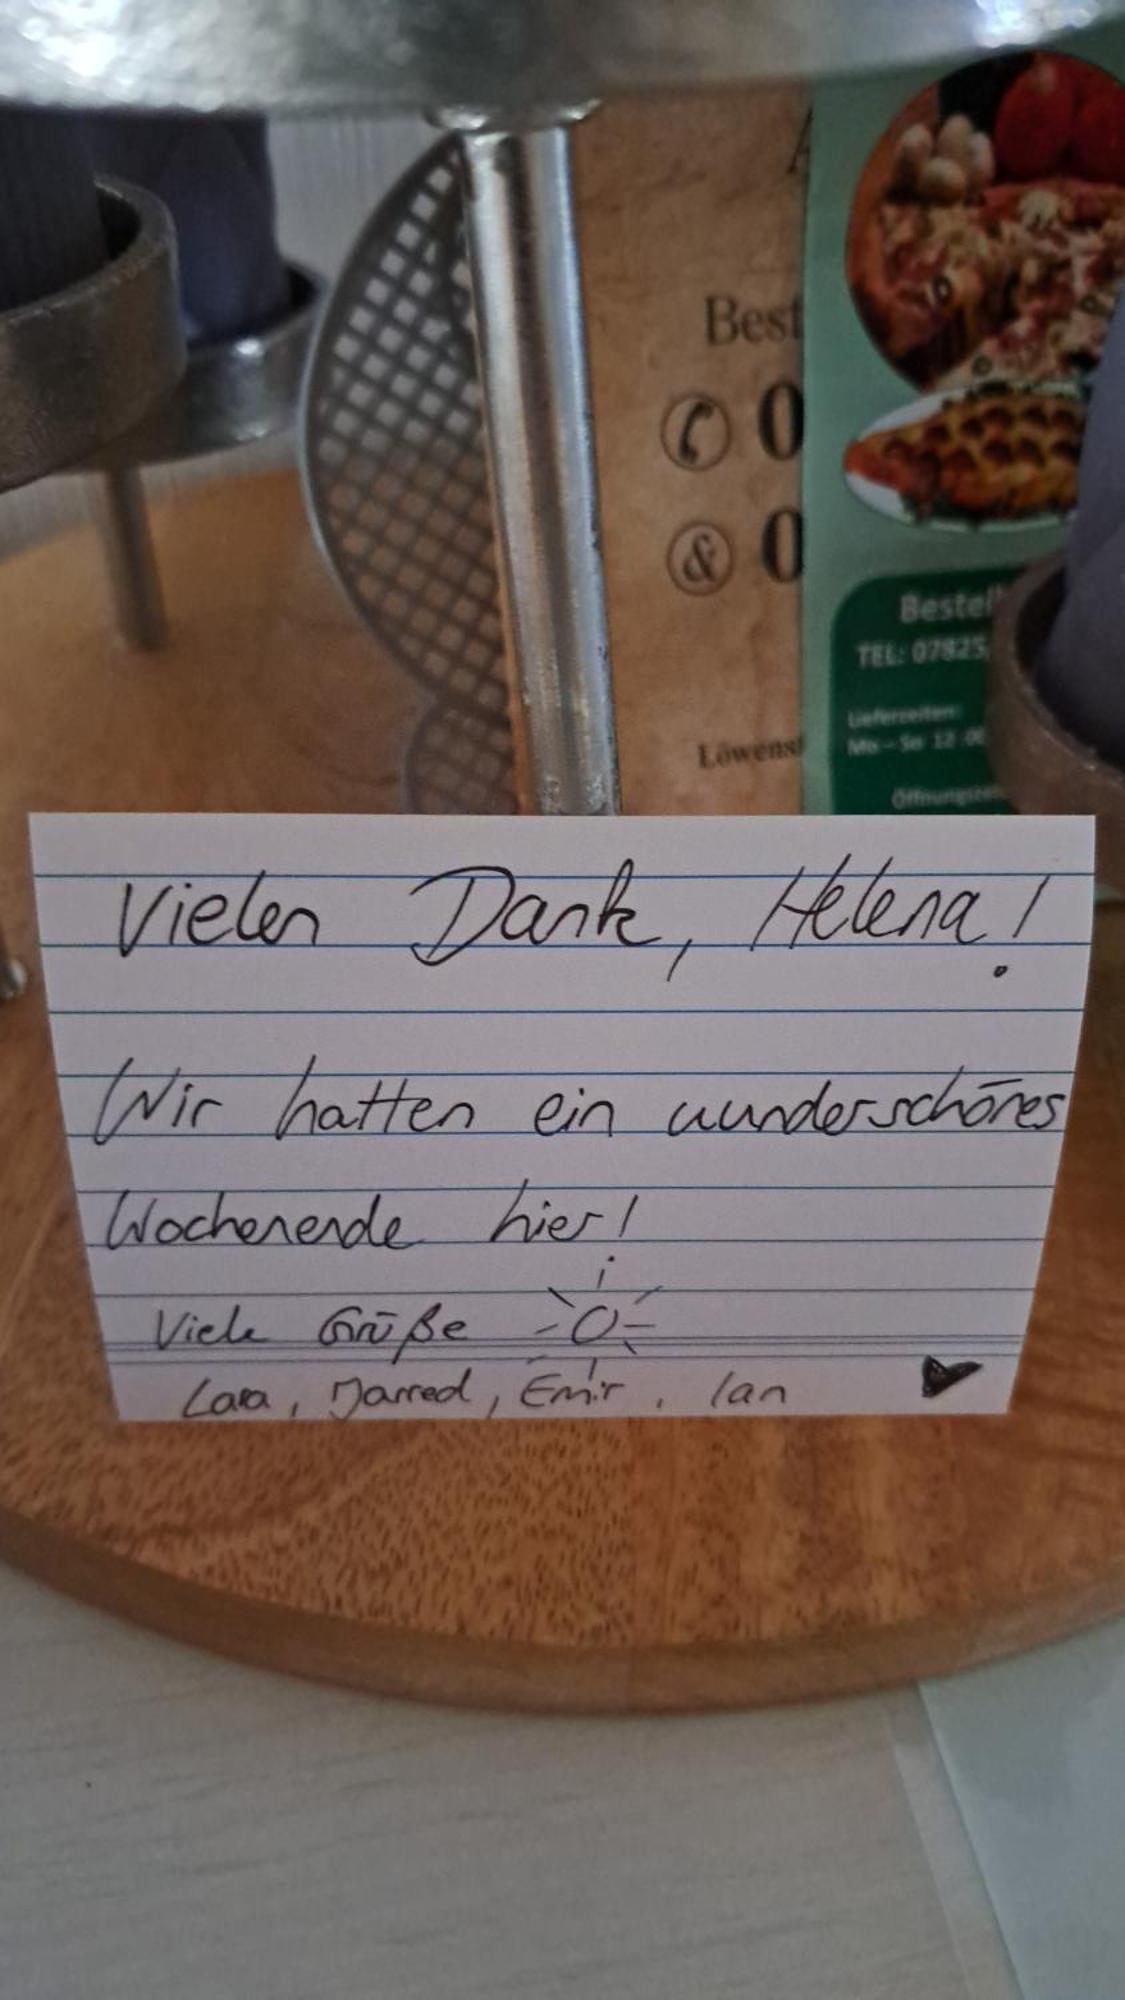 Best
0
& 0
Löwenst
Bestell
TEL: 07825
Lieferzeiten:
Mo - So 12
Öffnungszei
Vielen Dank, Helena!
Wir hatten ein wunderschönes
Wochenende hier!
Viele Grüße
Lara, Jarred, Emir, Ian